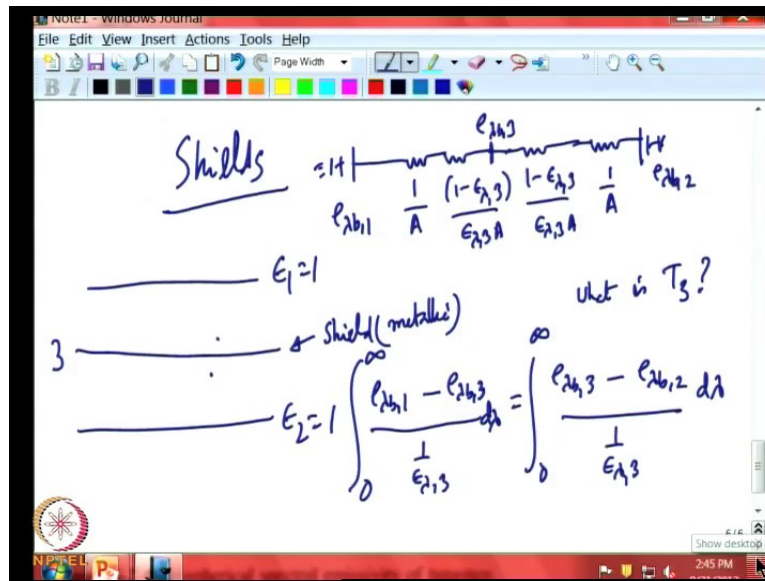 Note1 - Windows Journal
File Edit View Insert Actions Tools Help
Page Width
B I
Shields
e_{λb,3}
e_{λb,1} \frac{1}{A} \frac{(1-ϵ_{λ,3})}{ϵ_{λ,3}A} \frac{1-ϵ_{λ,3}}{ϵ_{λ,3}A} \frac{1}{A} e_{λb,2}
ϵ_1=1
what is T_3?
3 shield (metallic)
ϵ_2=1 \int_0^∞ \frac{e_{λb,1} - e_{λb,3}}{\frac{1}{ϵ_{λ,3}}} dλ = \int_0^∞ \frac{e_{λb,3} - e_{λb,2}}{\frac{1}{ϵ_{λ,3}}} dλ
6/6
Show desktop
NPTEL
2:45 PM